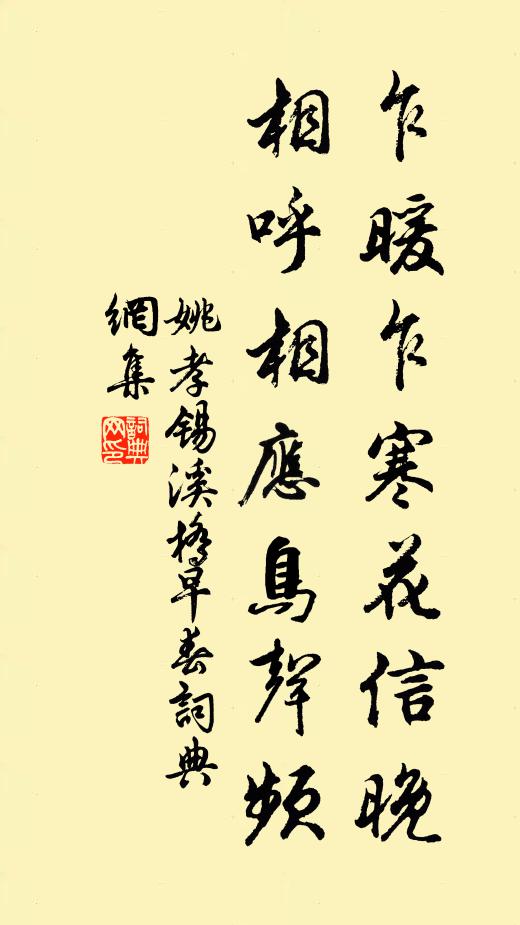 乍暖乍寒花信晚
相呼相應鳥聲頻
姚孝錫溪橋早春詞典
網集
詞典
网印